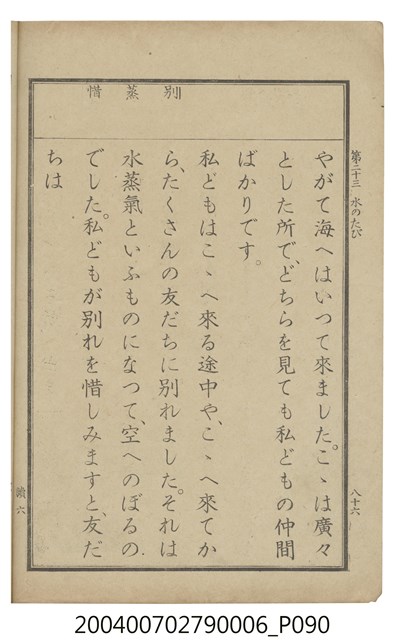 第二十三 水のたび
八十六
別 蒸 惜
やがて海へはいつて來ました。こゝは廣々
とした所で、どちらを見ても私どもの仲間
ばかりです。
私どもはこゝへ來る途中や、こゝへ來てか
ら、たくさんの友だちに別れました。それは
水蒸氣といふものになつて、空へのぼるの
でした。私どもが別れを惜しみますと、友だ
ちは
六
200400702790006_P090